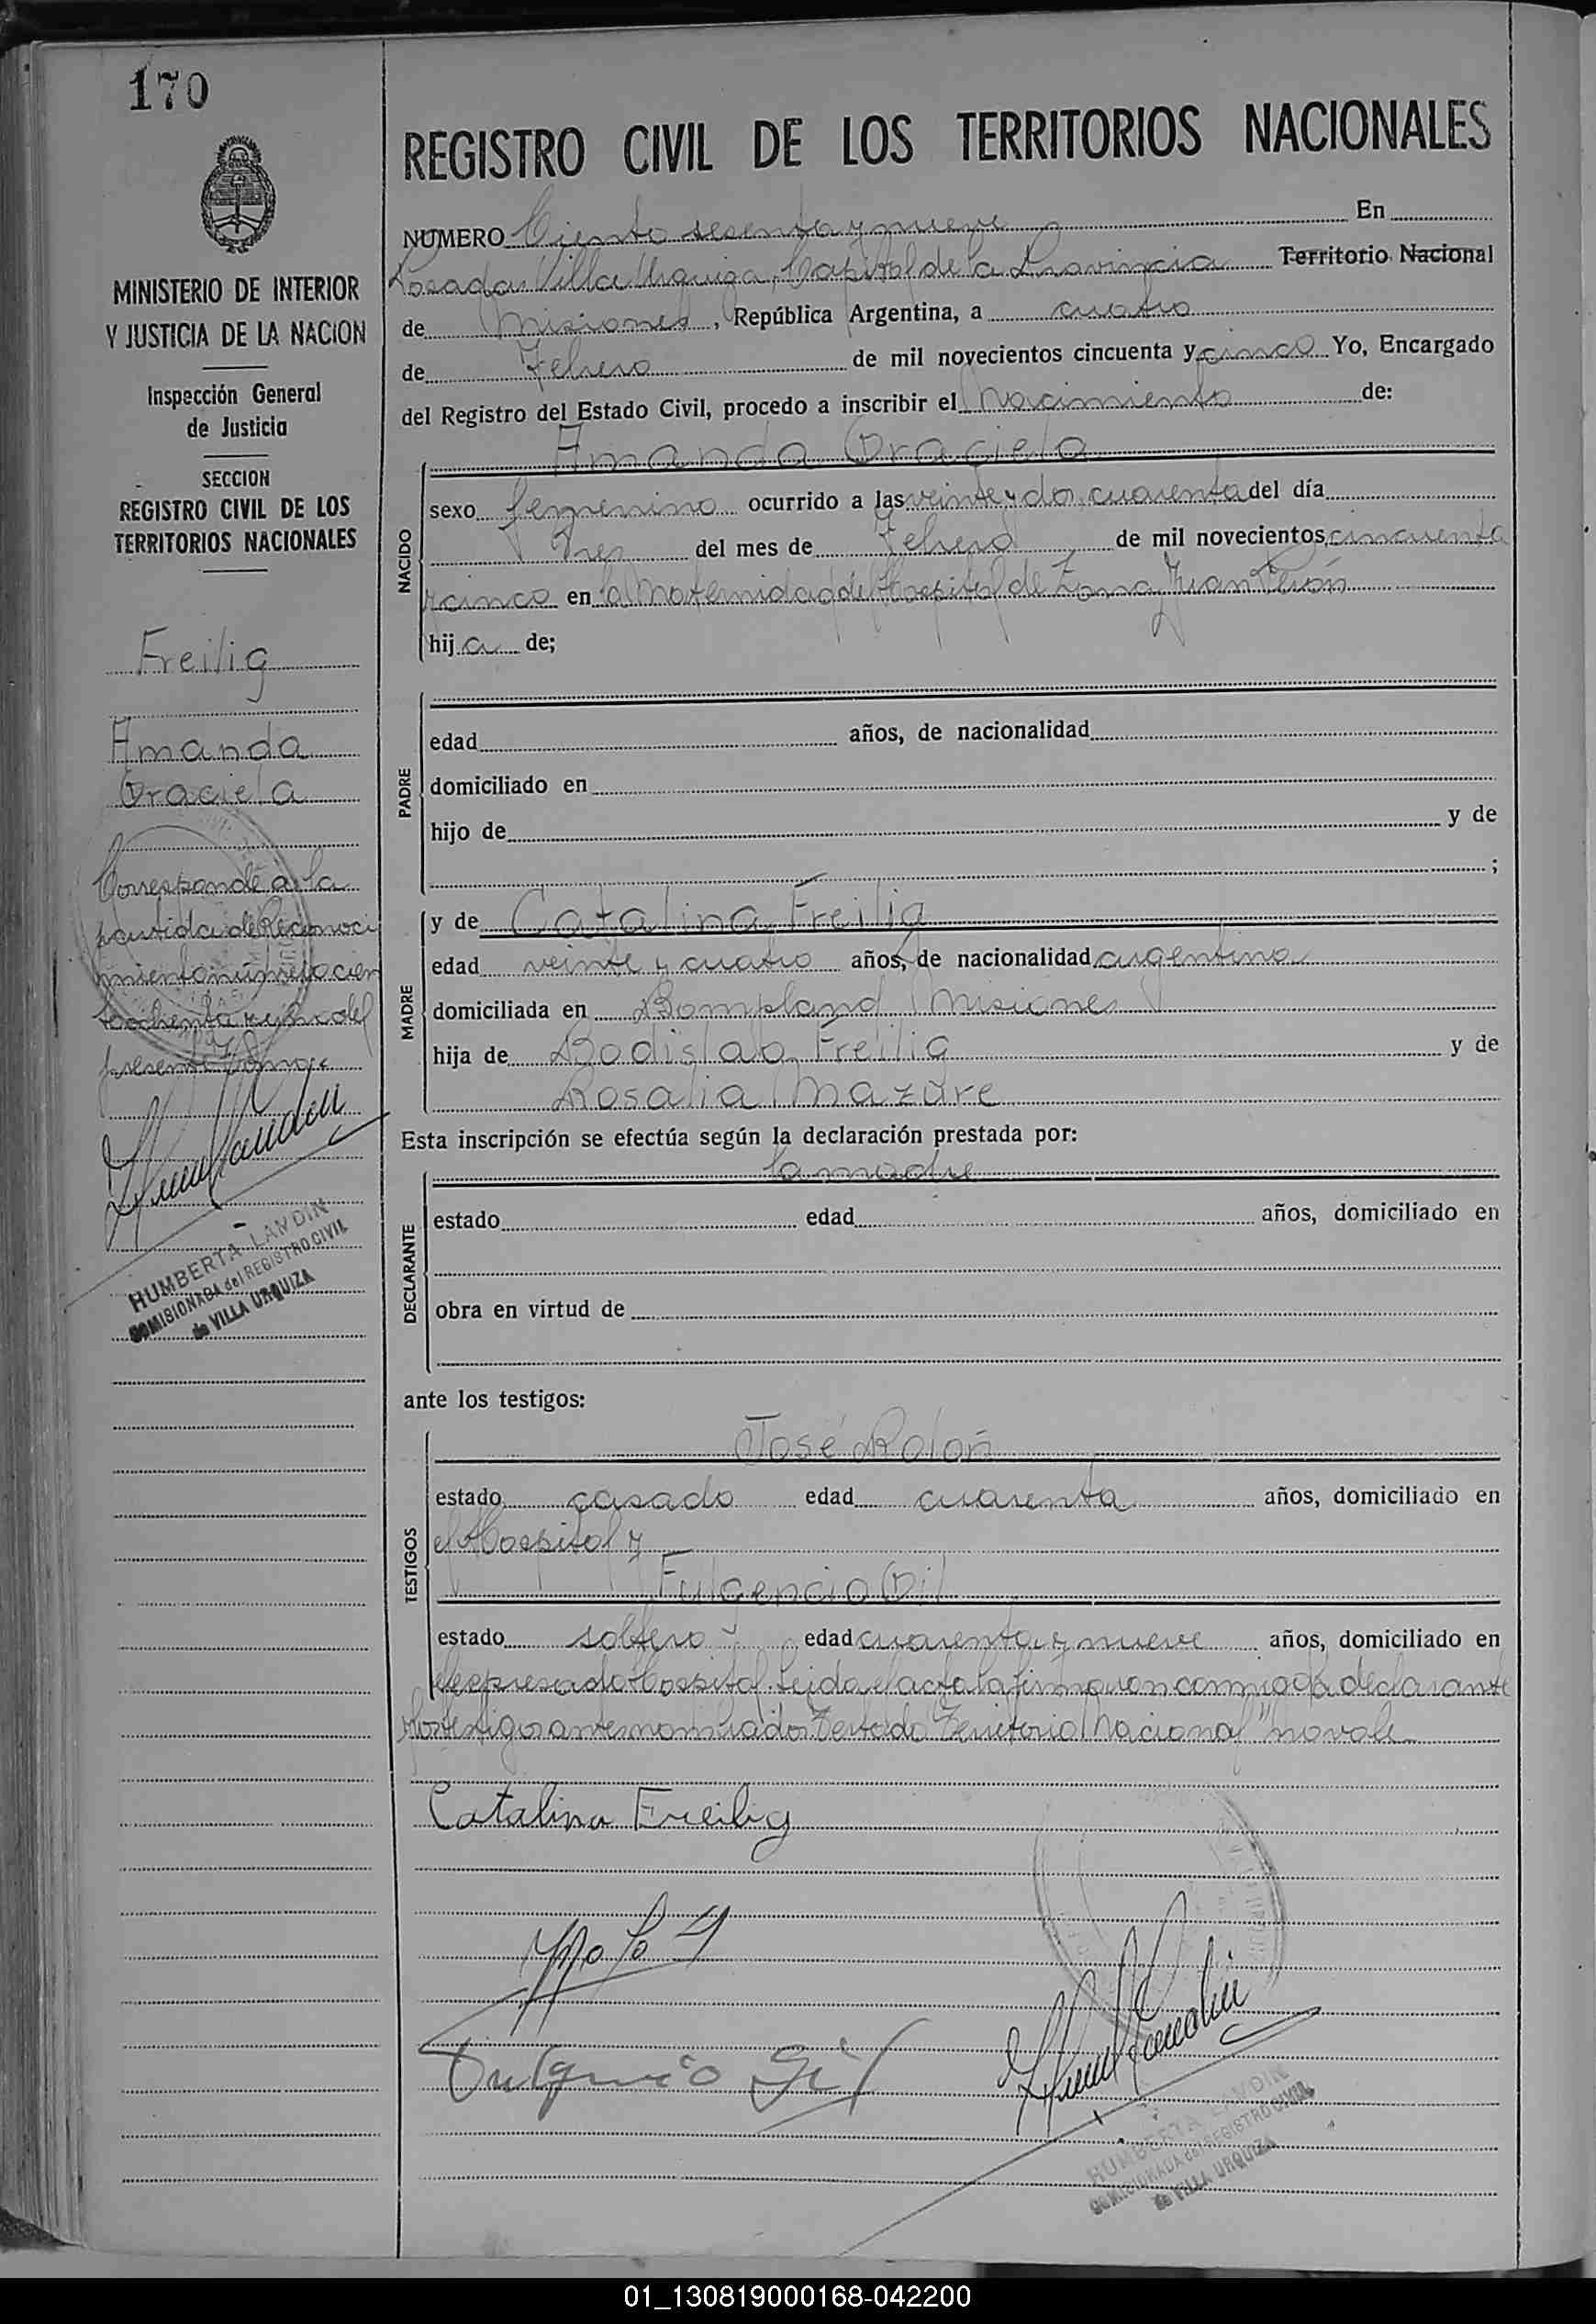 170
MINISTERIO DE INTERIOR
Y JUSTICIA DE LA NACION
Inspección General
de Justicia
SECCION
REGISTRO CIVIL DE LOS
TERRITORIOS NACIONALES
Freilig
Amanda
Graciela
Corresponde a la
partida de Reconoci
miento número cien
to ochenta y del
presente Tomo.
HUMBERTA LANDIN
COMISIONADA del REGISTRO CIVIL
de VILLA URQUIZA
REGISTRO CIVIL DE LOS TERRITORIOS NACIONALES
NUMERO Ciento sesenta y nueve En
Posadas Villa Urquiza, Capital de la Provincia Territorio Nacional
de Misiones, República Argentina, a cuatro
de Febrero de mil novecientos cincuenta y cinco Yo, Encargado
del Registro del Estado Civil, procedo a inscribir el Nacimiento de:
Amanda Graciela
NACIDO
sexo femenino ocurrido a las veinte y dos cuarenta del día
Tres del mes de Febrero de mil novecientos cincuenta
y cinco en la Maternidad del Hospital de Zona Juan Perón
hij a de;
PADRE
edad años, de nacionalidad
domiciliado en
hijo de y de
;
MADRE
y de Catalina Freilig
edad veinte y cuatro años, de nacionalidad argentina
domiciliada en Bompland Misiones
hija de Bodislao Freilig y de
Rosalia Mazure
Esta inscripción se efectúa según la declaración prestada por:
la madre
DECLARANTE
estado edad años, domiciliado en
obra en virtud de
ante los testigos:
TESTIGOS
José Rolón
estado casado edad cuarenta años, domiciliado en
el Hospital y
Fulgencio Gil
estado soltero edad cuarenta y nueve años, domiciliado en
el expresado Hospital. Leida el acta la firmaron conmigo la declarante
y los testigos antes nombrados. Testado "Territorio Nacional" no vale
Catalina Freilig
Fulgencio Gil
HUMBERTA LANDIN
COMISIONADA del REGISTRO CIVIL
de VILLA URQUIZA
01_130819000168-042200